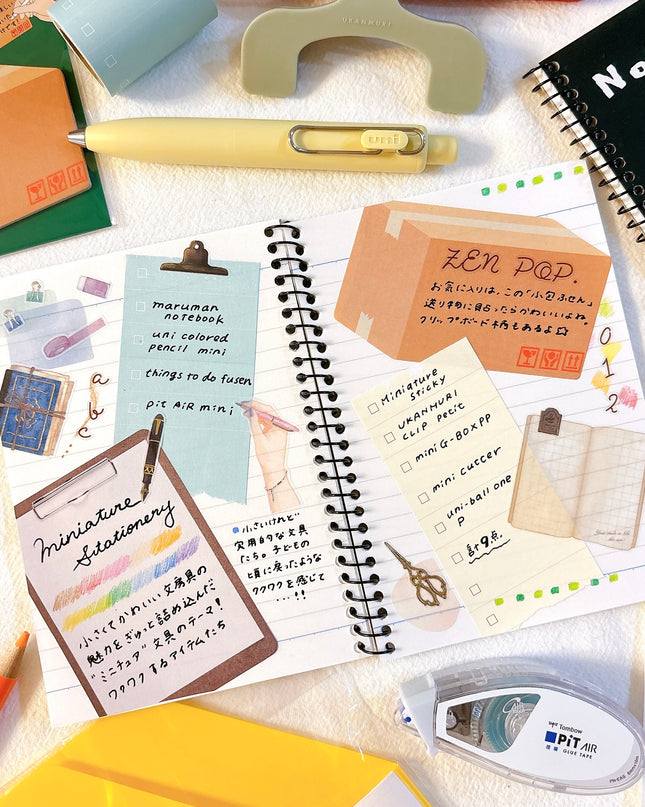 UKANMURI
uni
No
maruman
notebook
uni colored
pencil mini
things to do fusen
pit AiR mini
a
b
c
miniature
Stationery
小さくてかわいい文房具の
魅力をぎゅっと詰め込んだ
"ミニチュア"文具のテーマ!
ワクワクするアイテムたち
小さいけれど
実用的な文具
たち。子どもの
頃に戻ったような
ワクワクを感じて
...!!
ZEN POP.
お気に入りは、この「小包ふせん」
送り物に貼ったらかわいいよね
クリップボード柄もあるよ☆
Miniature
sticky
UKANMURI
CLIP petit
mini G-BOX PP
mini cutter
uni-ball one
P
計9点
0
1
2
Tombow
PiT AIR
GLUE TAPE